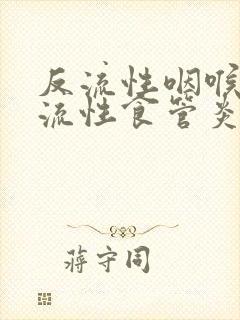 反流性咽喉
流性食管炎
蒋守同